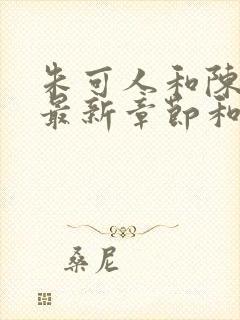 朱可人和陳
最新章節和
桑尼